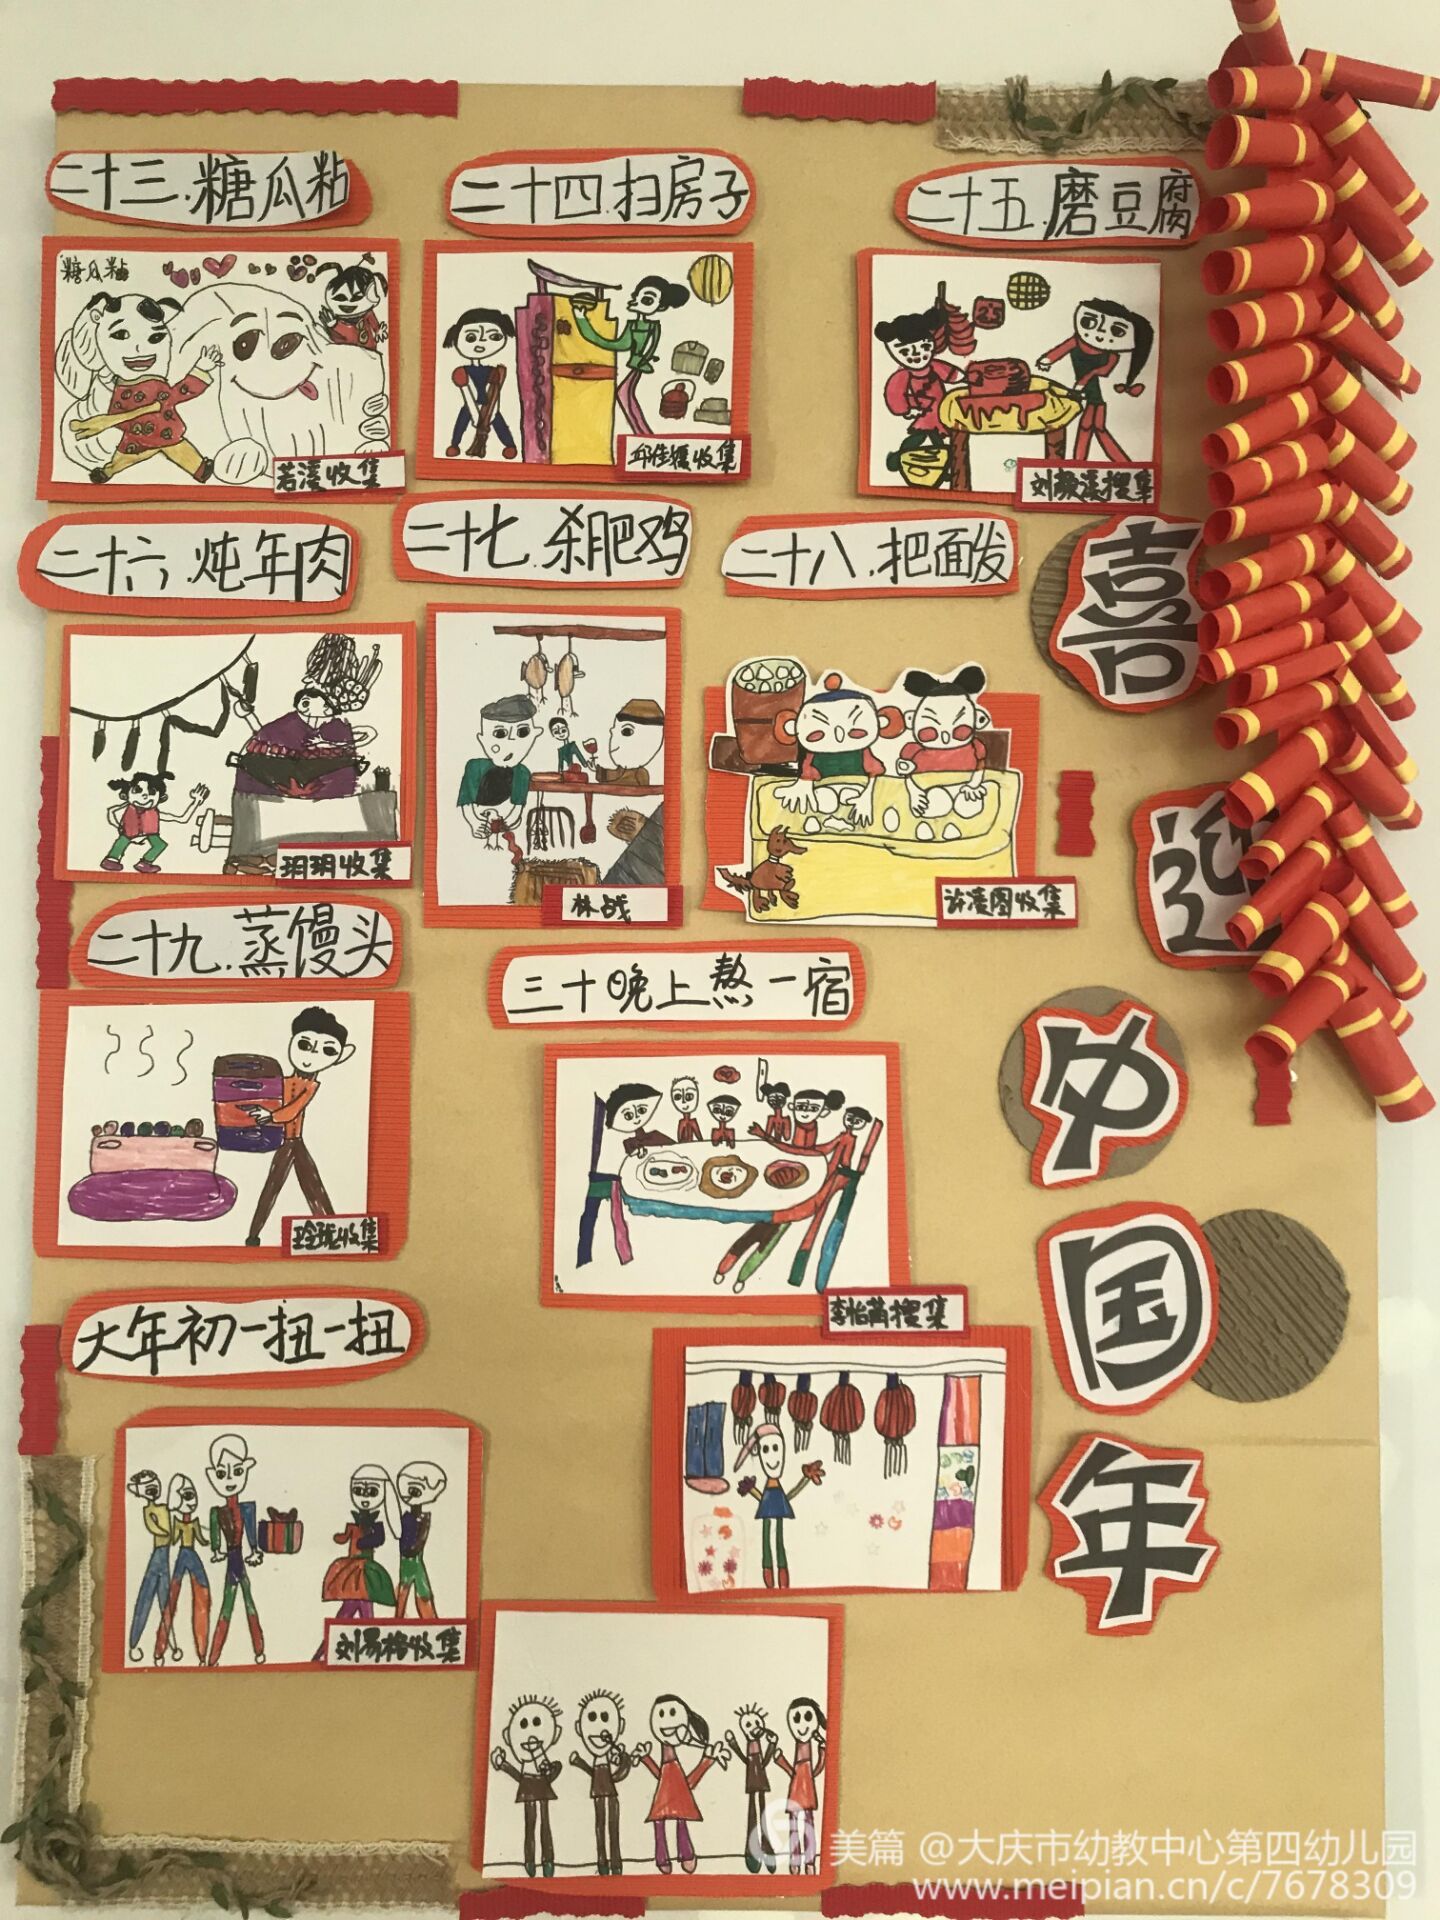 二十三.糖瓜粘
二十四.扫房子
二十五.磨豆腐
糖瓜粘
25
若溪收集
邱佳媛收集
搜集
二十六.炖年肉
二十七.杀肥鸡
二十八.把面发
喜
玥玥收集
林战
收集
迎
二十九.蒸馒头
三十晚上熬一宿
中
玲珑收集
国
大年初一扭一扭
李怡萳搜集
年
刘易格收集
美篇 @大庆市幼教中心第四幼儿园
www.meipian.cn/c/7678309